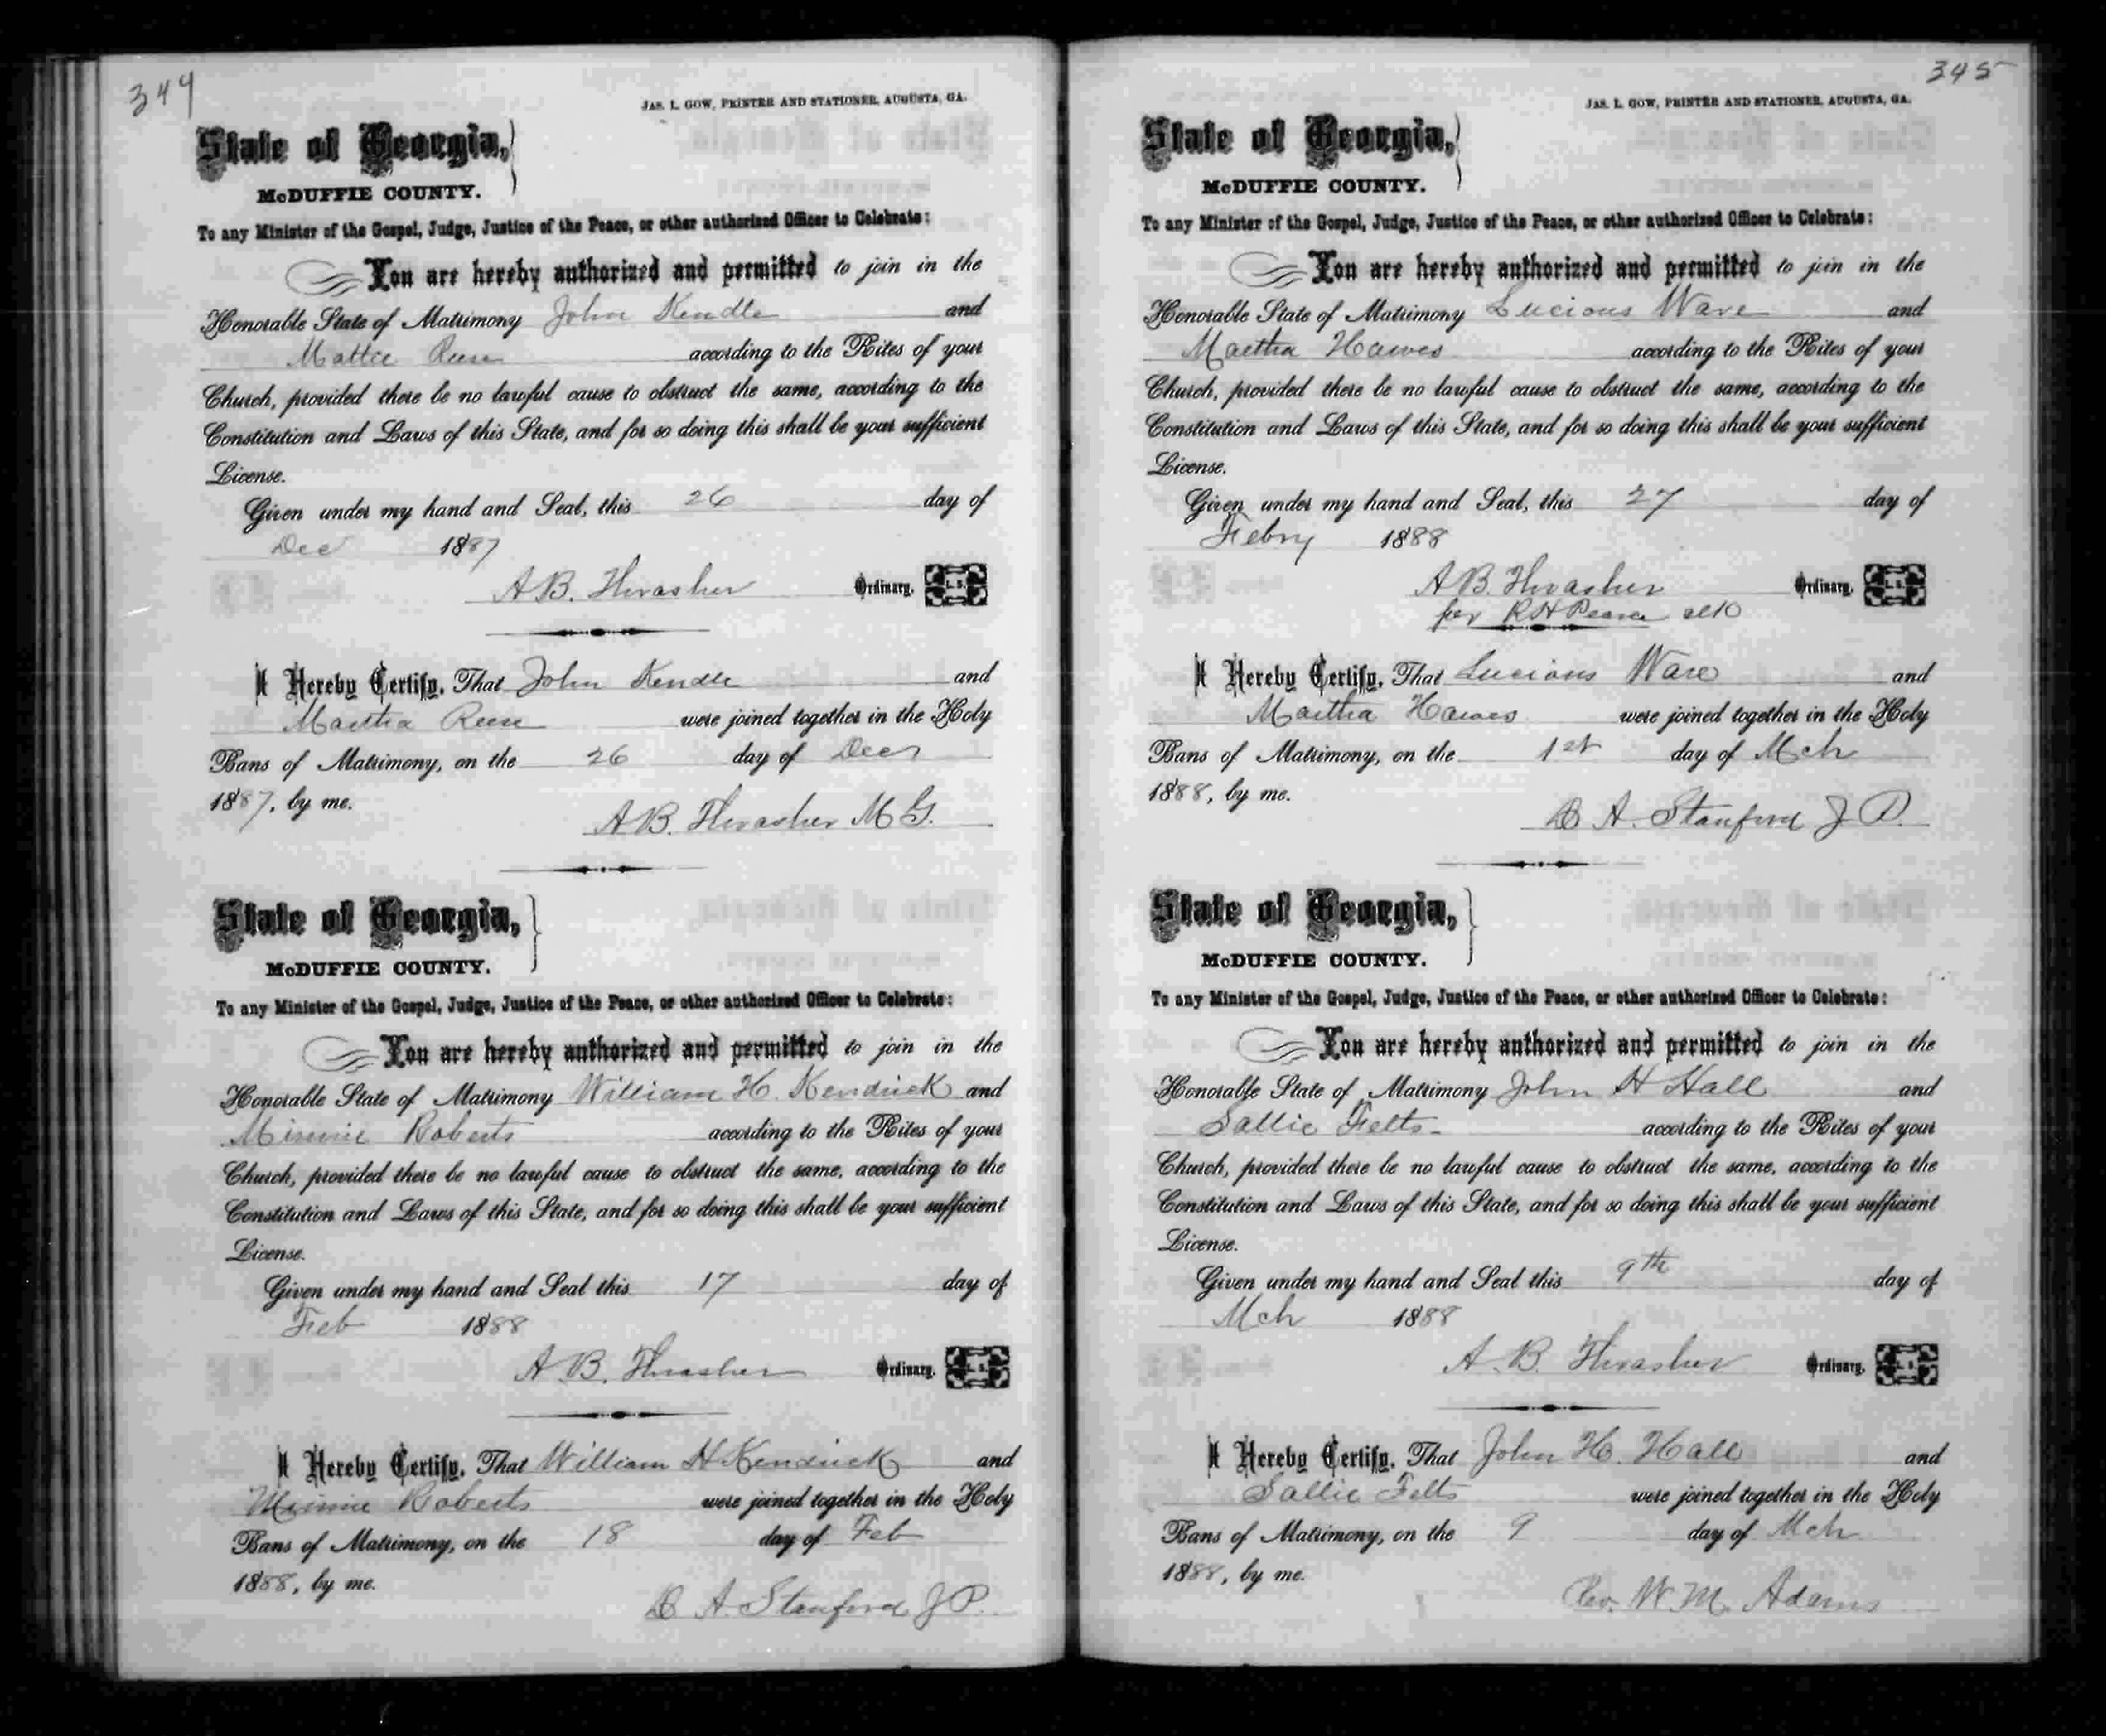 344
JAS. L. GOW, PRINTER AND STATIONER, AUGUSTA, GA.
State of Georgia,
McDUFFIE COUNTY.
To any Minister of the Gospel, Judge, Justice of the Peace, or other authorized Officer to Celebrate:
You are hereby authorized and permitted to join in the
Honorable State of Matrimony John Kendle and
Mattie Reese according to the Rites of your
Church, provided there be no lawful cause to obstruct the same, according to the
Constitution and Laws of this State, and for so doing this shall be your sufficient
License.
Given under my hand and Seal, this 26 day of
Dec 1887
A B. Thrasher Ordinary. L. S.
I Hereby Certify, That John Kendle and
Martha Reese were joined together in the Holy
Bans of Matrimony, on the 26 day of Dec
1887, by me.
A B. Thrasher M G.
State of Georgia,
McDUFFIE COUNTY.
To any Minister of the Gospel, Judge, Justice of the Peace, or other authorized Officer to Celebrate:
You are hereby authorized and permitted to join in the
Honorable State of Matrimony William H. Kendrick and
Minnie Roberts according to the Rites of your
Church, provided there be no lawful cause to obstruct the same, according to the
Constitution and Laws of this State, and for so doing this shall be your sufficient
License.
Given under my hand and Seal this 17 day of
Feb 1888
A B. Thrasher Ordinary. L. S.
I Hereby Certify, That William H Kendrick and
Minnie Roberts were joined together in the Holy
Bans of Matrimony, on the 18 day of Feb
1888, by me.
A. Stanford J P.
345
JAS. L. GOW, PRINTER AND STATIONER, AUGUSTA, GA.
State of Georgia,
McDUFFIE COUNTY.
To any Minister of the Gospel, Judge, Justice of the Peace, or other authorized Officer to Celebrate:
You are hereby authorized and permitted to join in the
Honorable State of Matrimony Lucious Ware and
Martha Hawes according to the Rites of your
Church, provided there be no lawful cause to obstruct the same, according to the
Constitution and Laws of this State, and for so doing this shall be your sufficient
License.
Given under my hand and Seal, this 27 day of
Febry 1888
A B. Thrasher Ordinary. L. S.
per R H Pearce
I Hereby Certify, That Lucious Ware and
Martha Hawes were joined together in the Holy
Bans of Matrimony, on the 1st day of Mch
1888, by me.
A. Stanford J P.
State of Georgia,
McDUFFIE COUNTY.
To any Minister of the Gospel, Judge, Justice of the Peace, or other authorized Officer to Celebrate:
You are hereby authorized and permitted to join in the
Honorable State of Matrimony John H Hall and
Sallie Felts according to the Rites of your
Church, provided there be no lawful cause to obstruct the same, according to the
Constitution and Laws of this State, and for so doing this shall be your sufficient
License.
Given under my hand and Seal this 9th day of
Mch 1888
A. B. Thrasher Ordinary. L. S.
I Hereby Certify, That John H. Hall and
Sallie Felts were joined together in the Holy
Bans of Matrimony, on the 9 day of Mch
1888, by me.
Rev. W. M. Adams